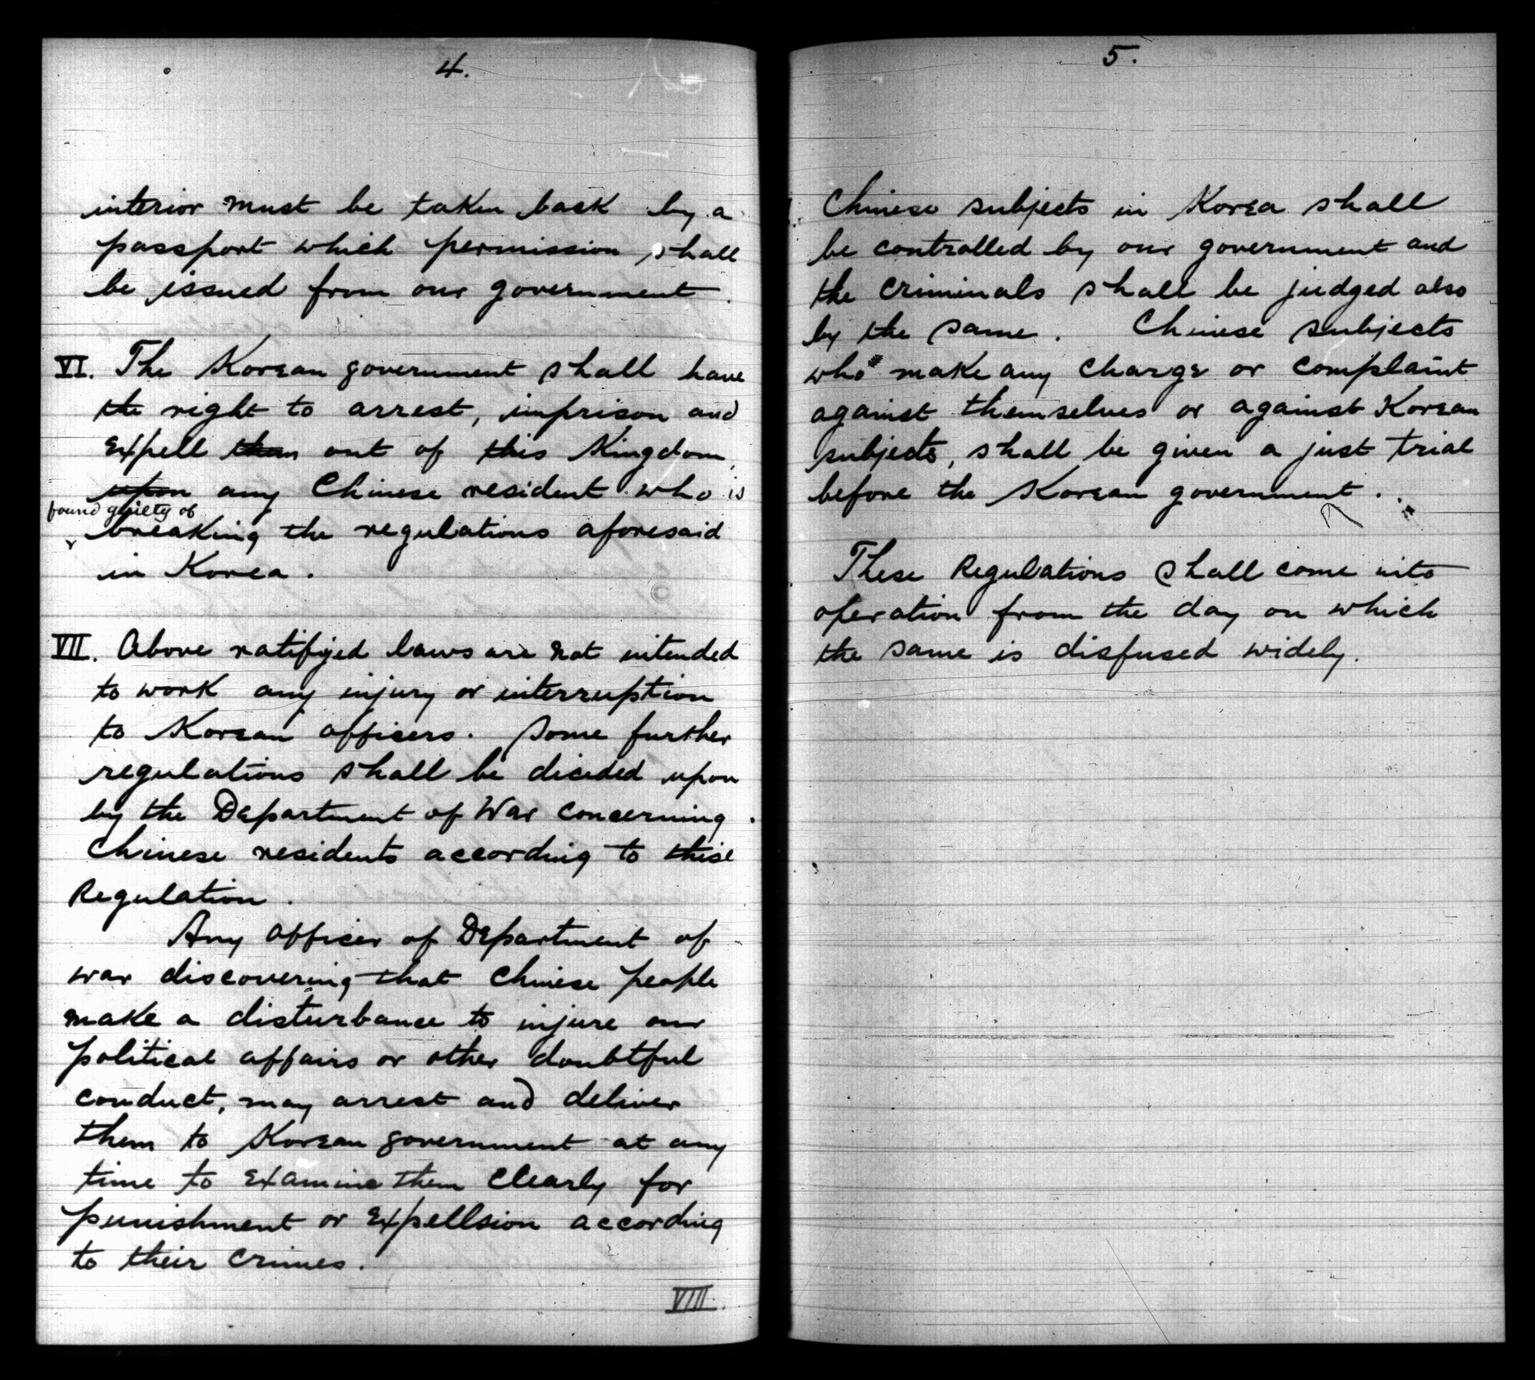 4.
interior must be taken back by a
passport which permission shall
be issued from our government.
VI. The Korean government shall have
the right to arrest, imprison and
expell them out of this Kingdom,
upon any Chinese resident who is
found guiety of
breaking the regulations aforesaid
in Korea.
VII. Above ratifyed laws are not intended
to work any injury or interruption
to Korean officers. Some further
regulations shall be dicided upon
by the Department of War concerning
Chinese residents according to this
Regulation.
Any officer of Department of
war discovering that Chinese people
make a disturbance to injure our
political affairs or other doubtful
conduct, may arrest and deliver
them to Korean government at any
time to examine them clearly for
punishment or expellsion according
to their crimes.
VIII.
5.
Chinese subjects in Korea shall
be controlled by our government and
the criminals shall be judged also
by the same. Chinese subjects
who make any charge or complaint
against themselves or against Korean
subjects, shall be given a just trial
before the Korean government.
These Regulations shall come into
operation from the day on which
the same is disfused widely.